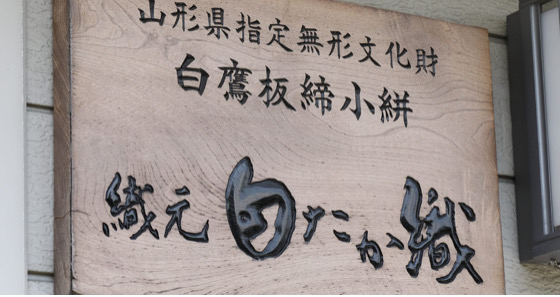 山形県指定無形文化財
白鷹板締小絣
織元 白たか織